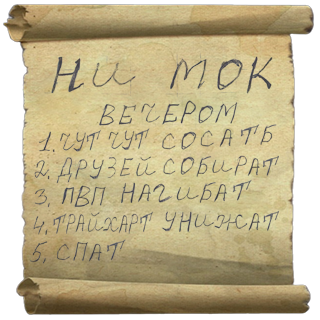 НИ МОК
ВЕЧЕРОМ
1. ЧУТ ЧУТ СОСАТБ
2. ДРУЗЕЙ СОБИРАТ
3. ПВП НАГИБАТ
4. ТРАЙХАРТ УНИЖАТ
5. СПАТ